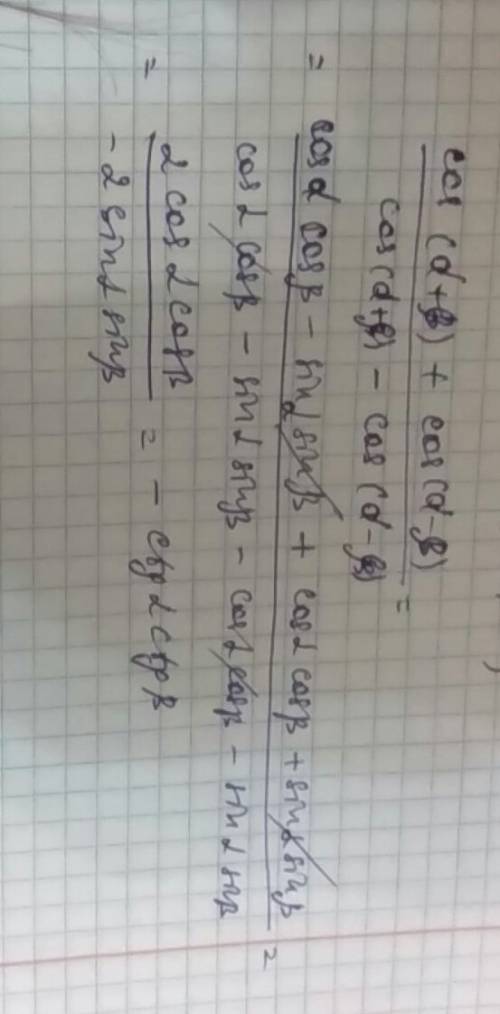 cos (α+β) + cos (α-β)
cos (α+β) - cos (α-β) =
= cos α cos β - sin α sin β + cos α cos β + sin α sin β
cos α cos β - sin α sin β - cos α cos β - sin α sin β =
= 2 cos α cos β
- 2 sin α sin β = - ctg α ctg β